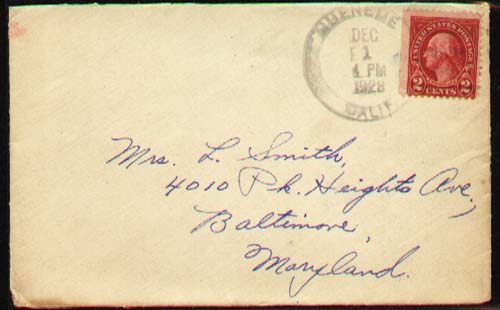 HUENEME
DEC
1
4 PM
1928
CALIF
UNITED STATES POSTAGE
2 CENTS 2
Mrs. L. Smith,
4010 Pk. Heights Ave.,
Baltimore,
Maryland.